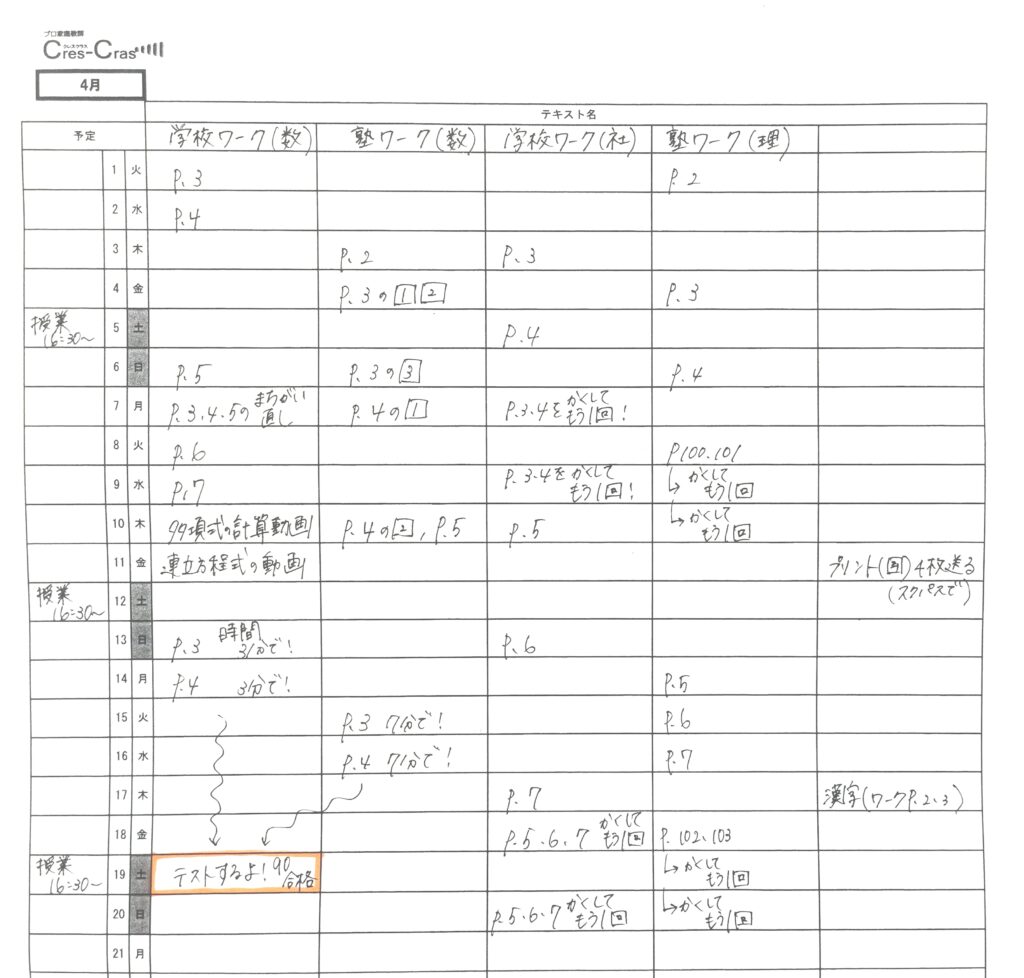 プロ家庭教師
クレスクラス
Cres-Cras
4月
テキスト名
予定 学校ワーク(数) 塾ワーク(数) 学校ワーク(社) 塾ワーク(理)
1 火 P.3 P.2
2 水 P.4
3 木 P.2 P.3
4 金 P.3の[1][2] P.3
授業 16:30〜 5 土 P.4
6 日 P.5 P.3の[3] P.4
7 月 P.3.4.5のまちがい直し P.4の[1] P.3.4をかくしてもう1回!
8 火 P.6 P100.101
9 水 P.7 P.3.4をかくしてもう1回! ↳かくしてもう1回
10 木 多項式の計算動画 P.4の[2], P.5 P.5 ↳かくしてもう1回
11 金 連立方程式の動画 プリント(国)4枚送る
授業 16:30〜 12 土 (スクパスで)
13 日 P.3 時間3分で! P.6
14 月 P.4 3分で! P.5
15 火 P.3 7分で! P.6
16 水 P.4 7分で! P.7
17 木 P.7 漢字(ワークP.2.3)
18 金 P.5.6.7 かくしてもう1回 P.102.103
授業 16:30〜 19 土 テストするよ!90合格 ↳かくしてもう1回
20 日 P.5.6.7 かくしてもう1回 ↳かくしてもう1回
21 月